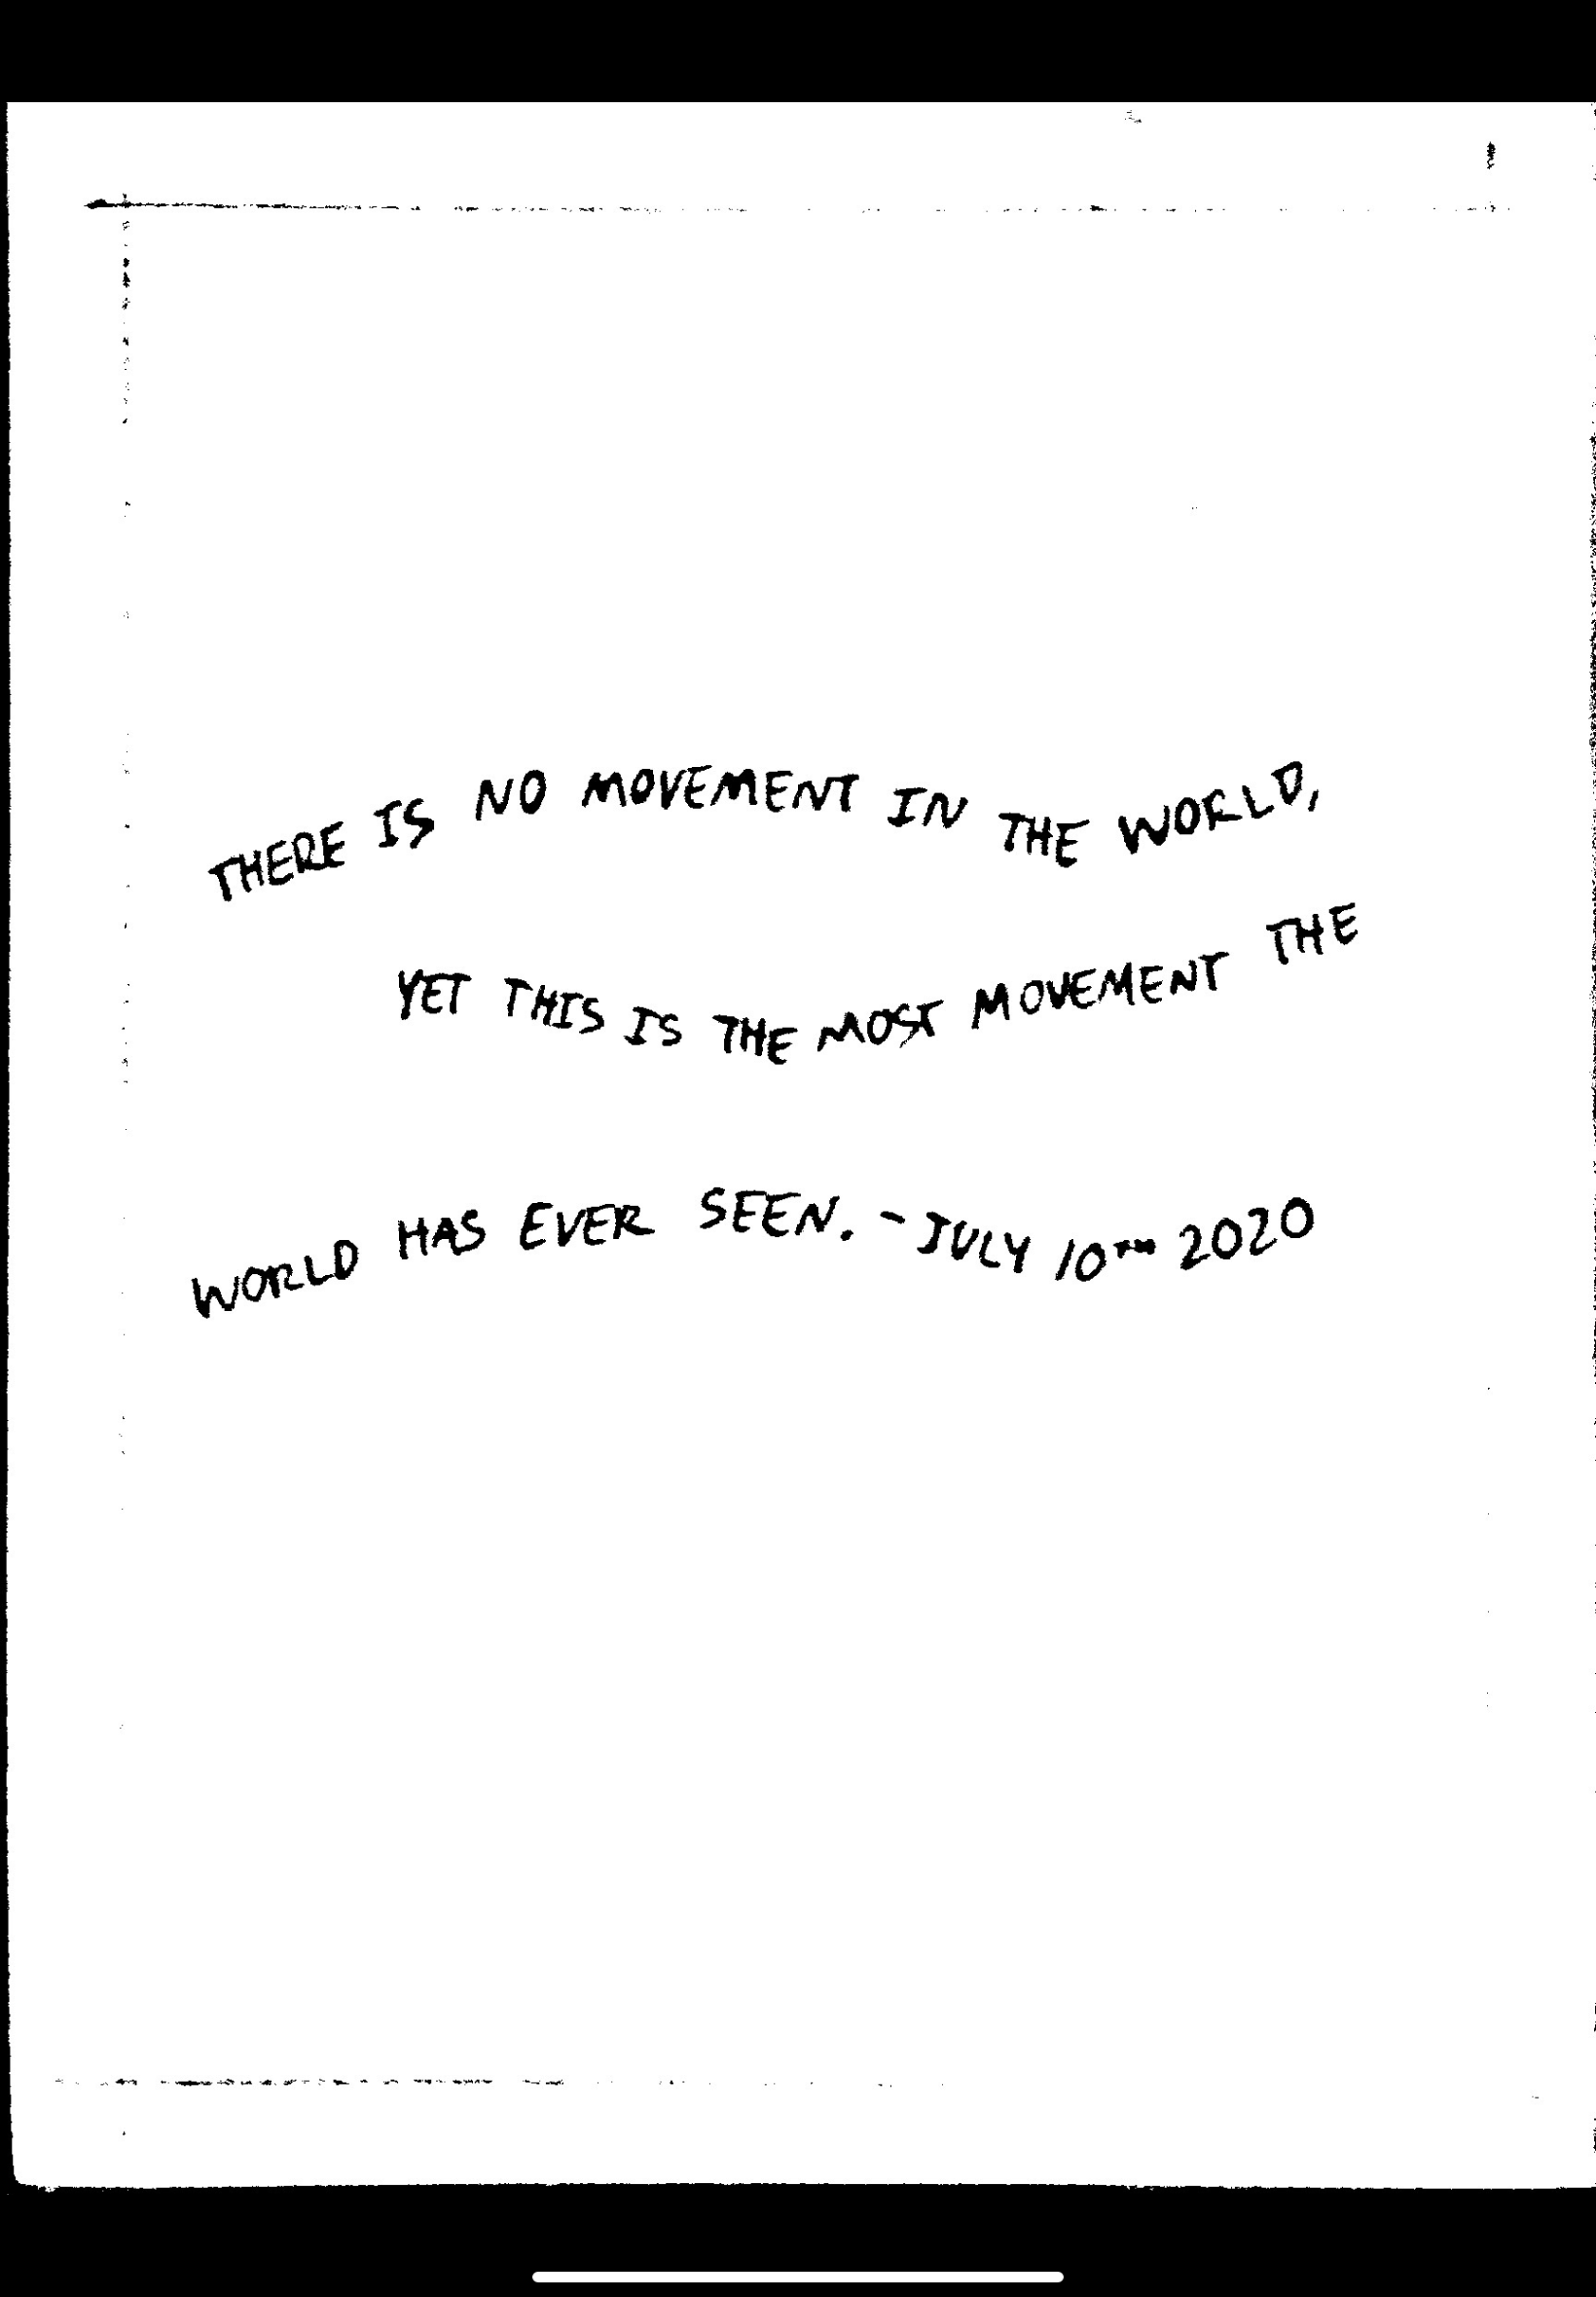 THERE IS NO MOVEMENT IN THE WORLD,
YET THIS IS THE MOST MOVEMENT THE
WORLD HAS EVER SEEN. - JULY 10TH 2020